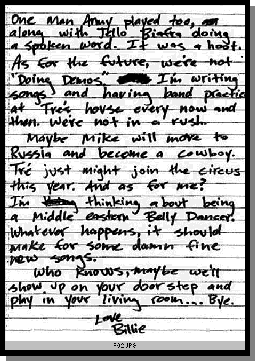 One Man Army played too,
along with Jello Biafra doing
a spoken word. It was a hoot.
As for the future, we're not
"Doing Demos" I'm writing
songs and having band practice
at Tré's house every now and
then. We're not in a rush.
Maybe Mike will move to
Russia and become a cowboy.
Tré just might join the circus
this year. And as for me?
I'm thinking about being
a Middle eastern Belly Dancer.
Whatever happens, it should
make for some damn fine
new songs.
Who knows, maybe we'll
show up on your door step and
play in your living room... Bye.
Love
Billie